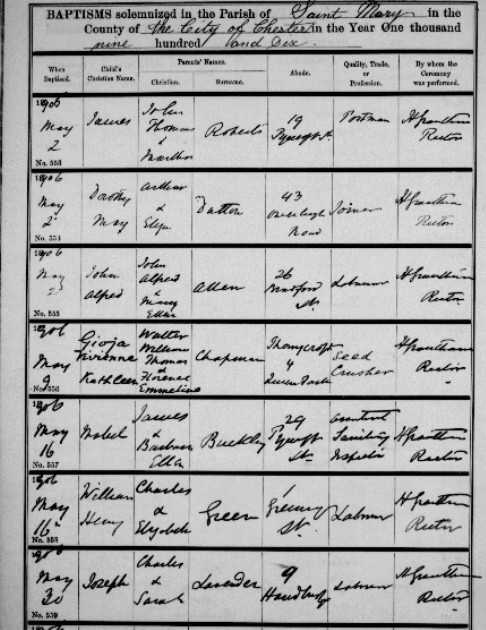 BAPTISMS solemnized in the Parish of Saint Mary in the
County of the City of Chester in the Year One thousand
nine hundred and Six.
When Baptized.
Child's Christian Name.
Parents' Names.
Christian.
Surname.
Abode.
Quality, Trade, or Profession.
By whom the Ceremony was performed.
1906
May
2
No. 553
James
John
Thomas
&
Martha
Roberts
19
Postman
H Grantham
Rector
1906
May
2
No. 554
Dorothy
May
Arthur
&
Eliza
Dutton
43
Road
Joiner
H Grantham
Rector
1906
May
2
No. 555
John
Alfred
John
Alfred
&
Mary
Ellen
Allen
26
Bradford
St.
Labourer
H Grantham
Rector
1906
May
9
No. 556
Gioja
Vivienne
Kathleen
Walter
William
Thomas
&
Florence
Emmeline
Chapman
Thornycroft
4
Queens Park
Seed
Crusher
H Grantham
Rector
1906
May
16
No. 557
Mabel
James
&
Barbara
Ellen
Buckley
29
St.
Assistant
Sanitary
Inspector
H Grantham
Rector
1906
May
16
No. 558
William
Henry
Charles
&
Elizabeth
Green
1
St.
Labourer
H Grantham
Rector
1906
May
30
No. 559
Joseph
Charles
&
Sarah
Lavender
9
Handbridge
Labourer
H Grantham
Rector